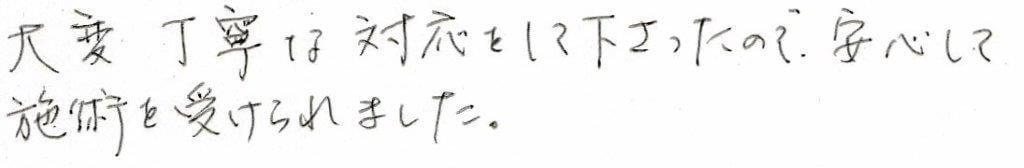 大変 丁寧な対応をして下さったので、安心して
施術を受けられました。